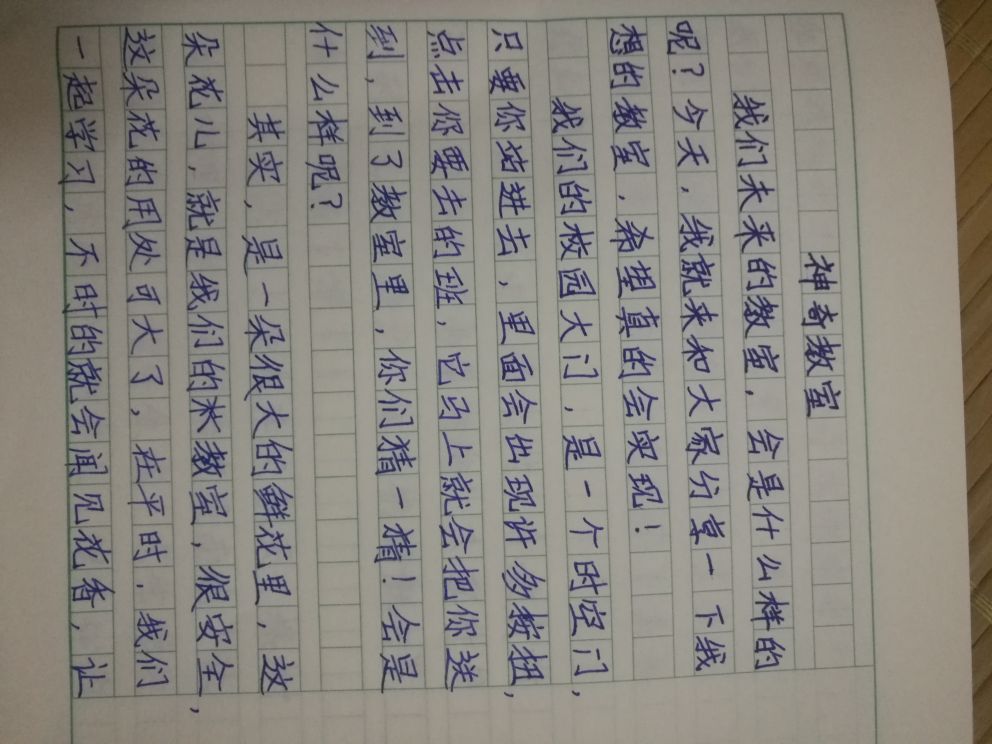 神奇教室
我们未来的教室，会是什么样的
呢？今天，我就来和大家分享一下我
想的教室，希望真的会实现！
我们的校园大门，是一个时空门，
只要你站进去，里面会出现许多按扭，
点击你要去的班，它马上就会把你送
到，到了教室里，你们猜一猜！会是
什么样呢？
其实，是一朵很大的鲜花里，这
朵花儿，就是我们的米教室，很安全，
这朵花的用处可大了，在平时，我们
一起学习，不时的就会闻见花香，让